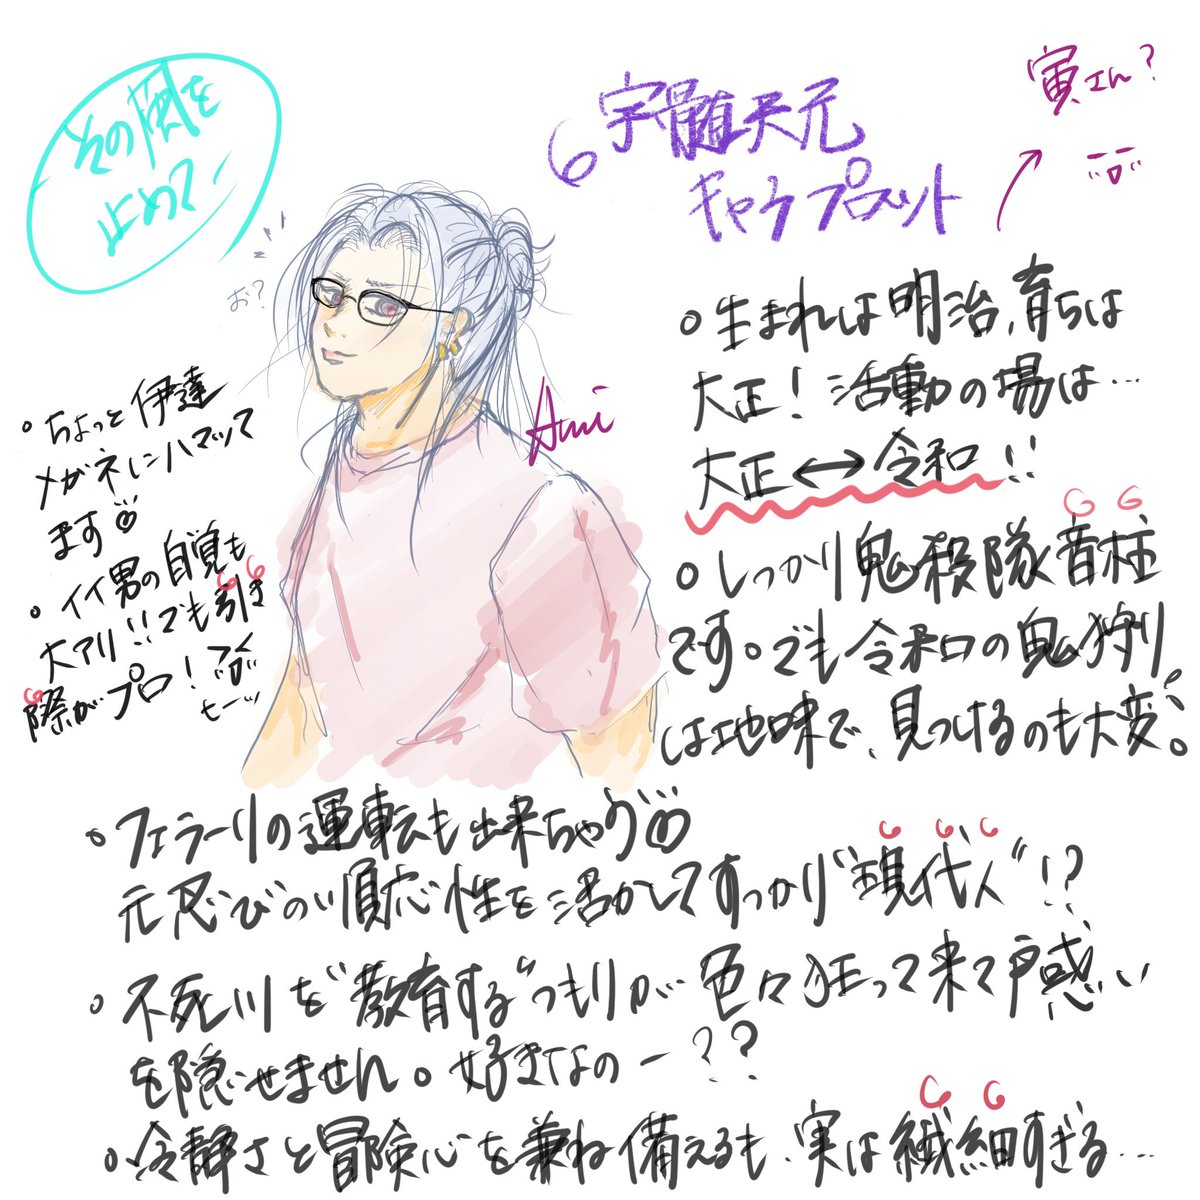 その風を
止めて
宇髄天元
キャラプロット
寅さん?
お?
Ami
・生まれは明治、育ちは
大正! 活動の場は…
大正↔令和!!
・しっかり鬼殺隊音柱
です。でも令和の鬼狩り
は地味で、見つけるのも大変。
・ちょっと伊達
メガネにハマッて
ます
・イイ男の自覚も
大アリ!!でも引き
際がプロ!
・フェラーリの運転も出来ちゃう
元忍びの順応性を活かしてすっかり"現代人"!?
・不死川を"教育する"つもりが色々狂って来て戸惑い
を隠せません。好きなのー??
・冷静さと冒険心を兼ね備えるも、実は繊細すぎる…